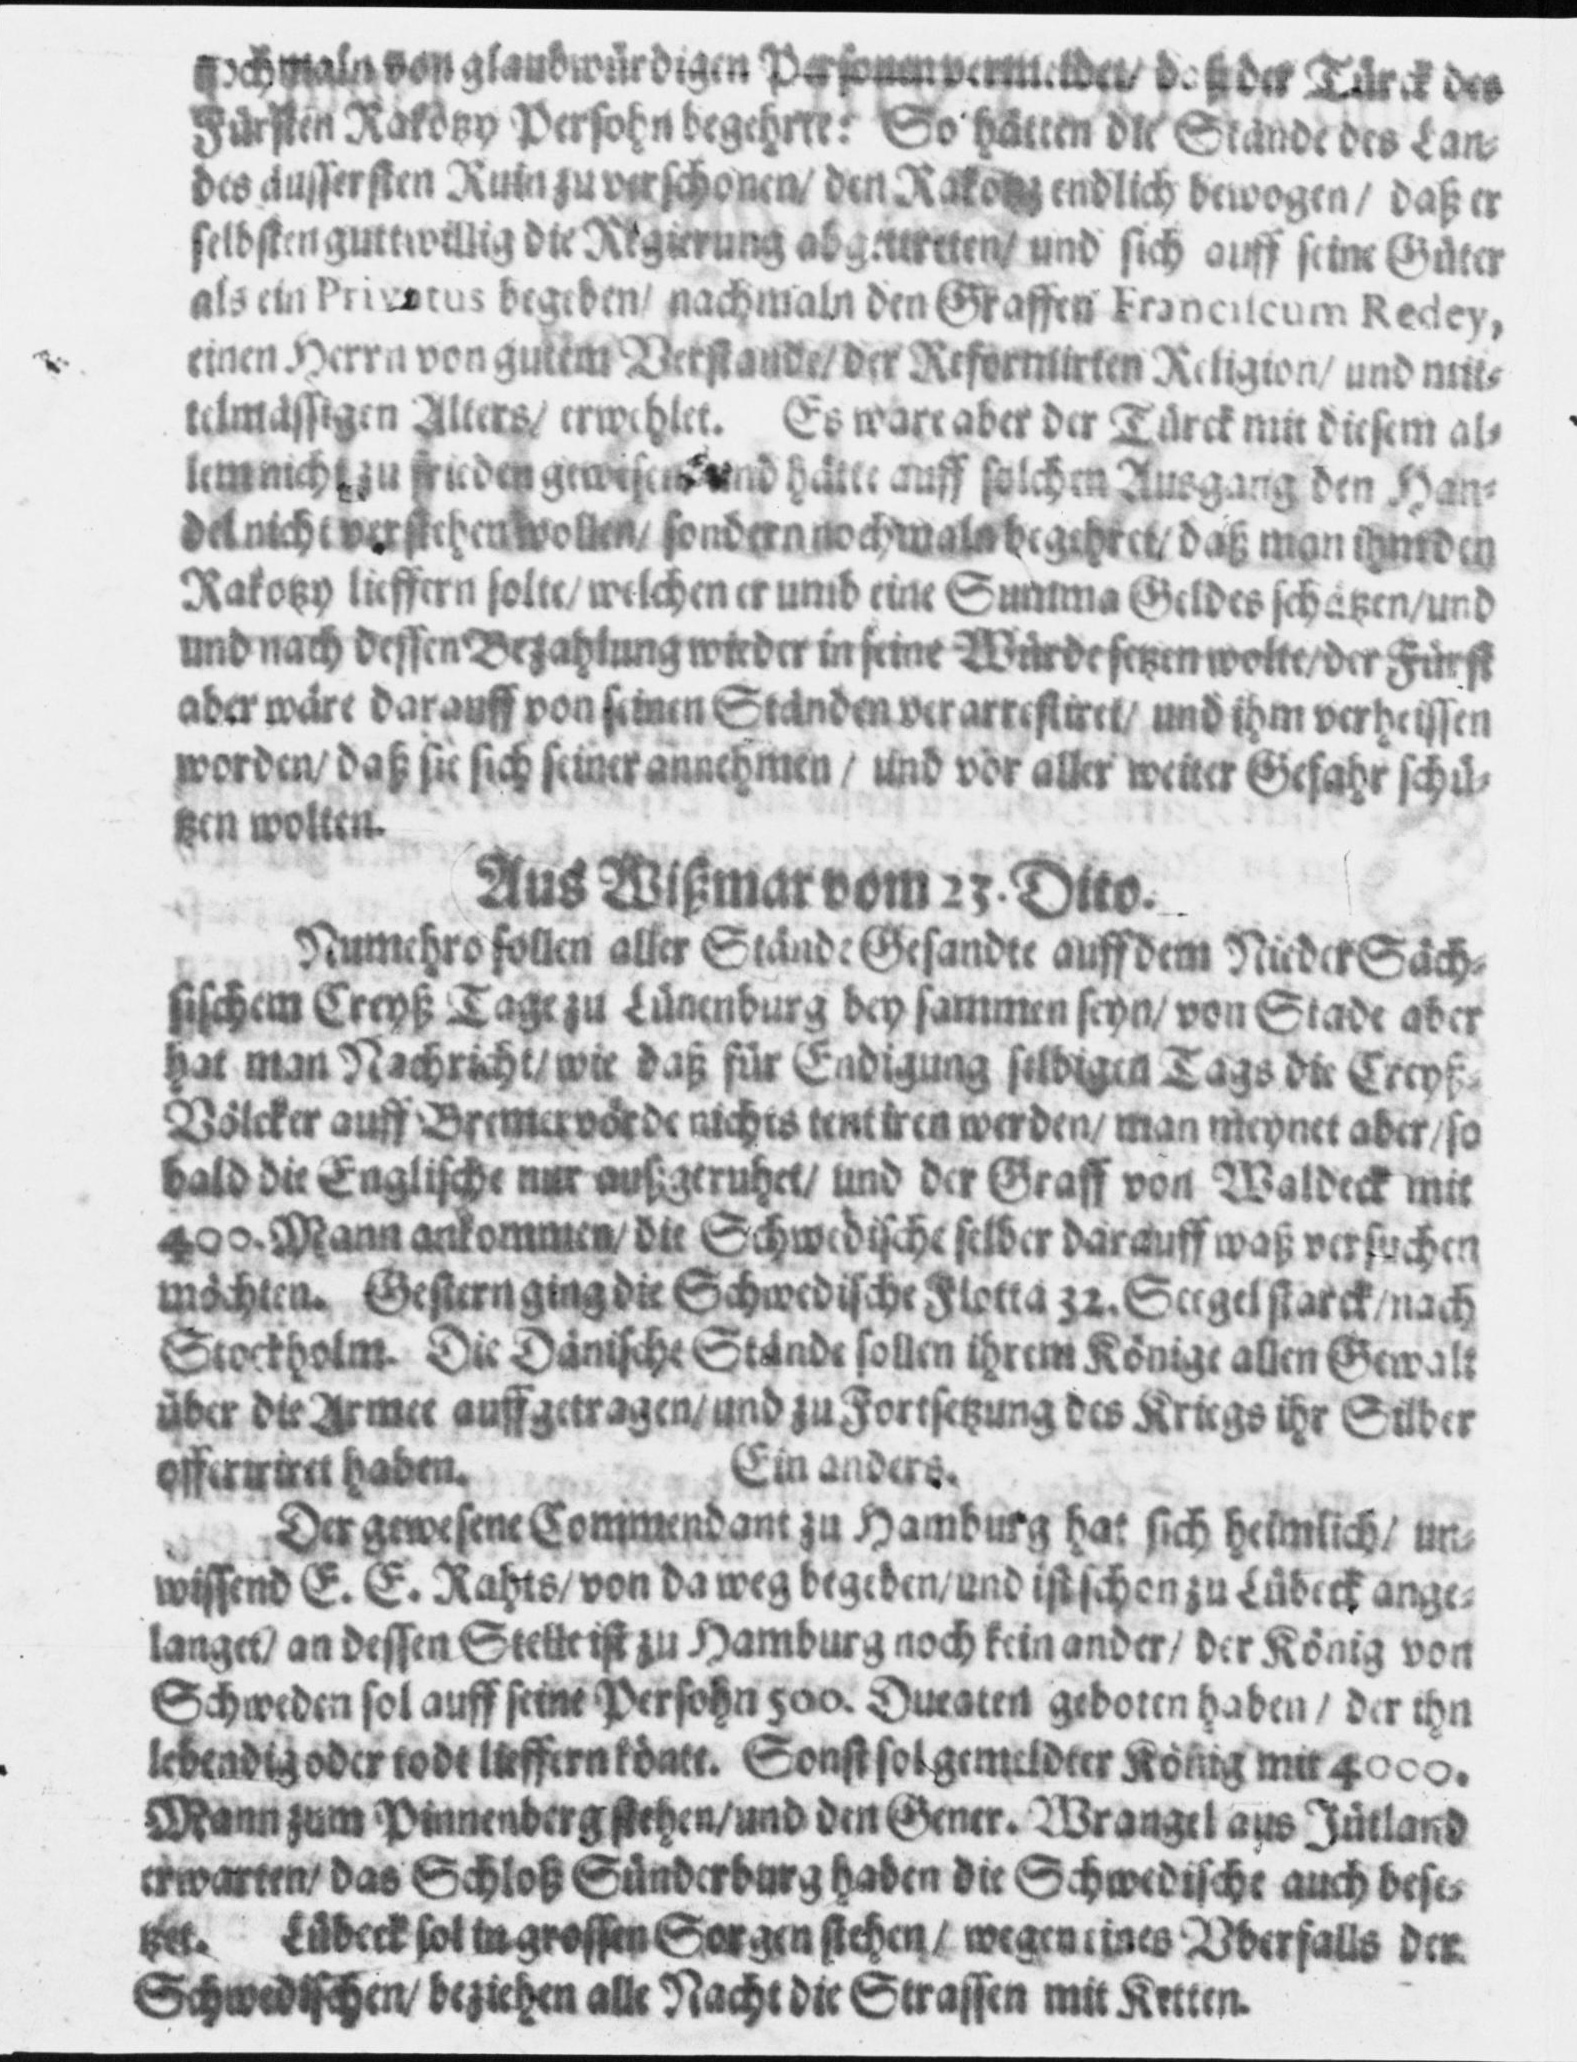 nochmaln von glaubwürdigen Personen vermeldet/ daß der Türck des
Fürsten Rakotzy Persohn begehrte: So hätten die Stände des Lan-
des äussersten Ruin zu verschonen/ den Rakotzy endlich bewogen/ daß er
selbsten guttwillig die Regierung abgetretten/ und sich auff seine Güter
als ein Privatus begeben/ nachmaln den Graffen Franciscum Redey,
einen Herrn von gutem Verstande/ der Reformirten Religion/ und mit-
telmässigen Alters/ erwehlet. Es ware aber der Türck mit diesem al-
lem nicht zu frieden gewesen und hätte auff solchen Ausgang den Han-
del nicht verstehen wollen/ sondern nochmaln begehret/ daß man ihm den
Rakotzy lieffern solte/ welchen er umb eine Summa Geldes schätzen/ und
und nach dessen Bezahlung wieder in seine Würde setzen wolte/ der Fürst
aber wäre darauff von seinen Ständen verarrestiret/ und ihm verheissen
worden/ daß sie sich seiner annehmen/ und vor aller weiter Gefahr schü-
tzen wolten.
Aus Wißmar vom 23. Dito.
Numehro sollen aller Stände Gesandte auff dem Nieder Säch-
sischem Creyß Tage zu Lünenburg bey sammen seyn/ von Stade aber
hat man Nachricht/ wie daß für Endigung selbigen Tags die Creyß-
Völcker auff Bremervörde nichts tentiren werden/ man meynet aber/ so
bald die Englische nur außgeruhet/ und der Graff von Waldeck mit
400. Mann ankommen/ die Schwedische selber darauff waß versuchen
möchten. Gestern ging die Schwedische Flotta 32. Seegel starck/ nach
Stockholm. Die Dänische Stände sollen ihrem Könige allen Gewalt
über die Armee auffgetragen/ und zu Fortsetzung des Kriegs ihr Silber
offeriret haben. Ein anders.
Der gewesene Commendant zu Hamburg hat sich heimlich/ un-
wissend E. E. Rahts/ von da weg begeben/ und ist schon zu Lübeck ange-
langet/ an dessen Stelle ist zu Hamburg noch kein ander/ der König von
Schweden sol auff seine Persohn 500. Ducaten geboten haben/ der ihn
lebendig oder todt lieffern könte. Sonst sol gemeldter König mit 4000.
Mann zum Pinnenberg stehen/ und den Gener. Wrangel aus Jütland
erwarten/ das Schloß Sünderburg haben die Schwedische auch bese-
tzet. Lübeck sol in grossen Sorgen stehen/ wegen eines Vberfalls der
Schwedischen/ beziehen alle Nacht die Strassen mit Ketten.